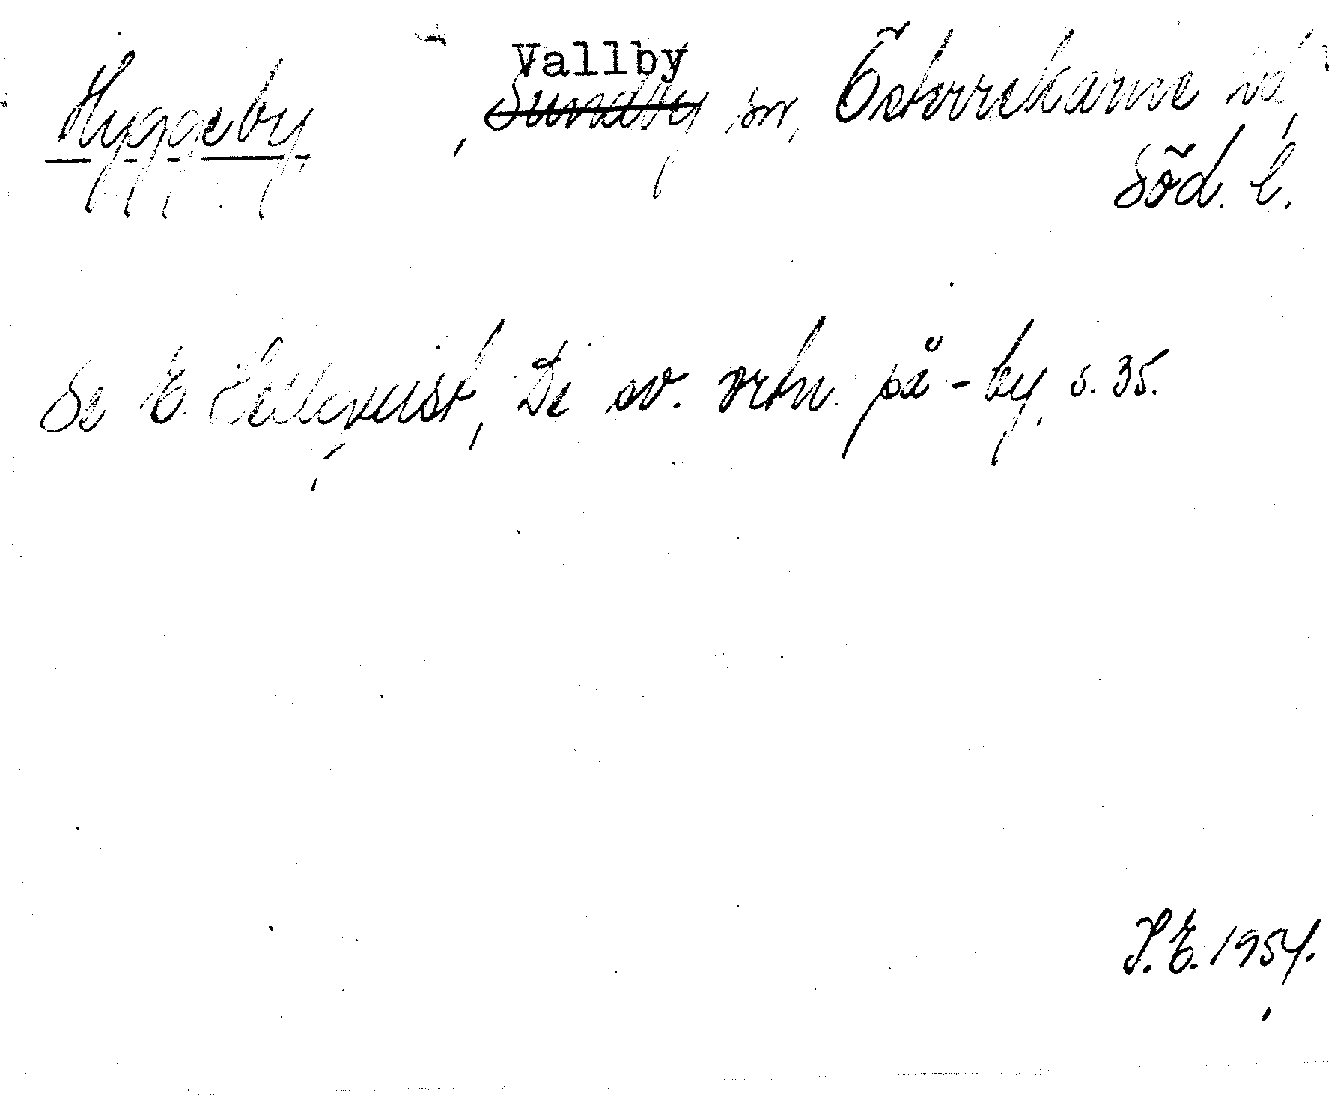 Vallby
Hyggeby, Sundby sn, Österrekarne hd,
Söd. l.
Se E. Hellquist, De sv. ortn. på -by, s. 35.
1954.